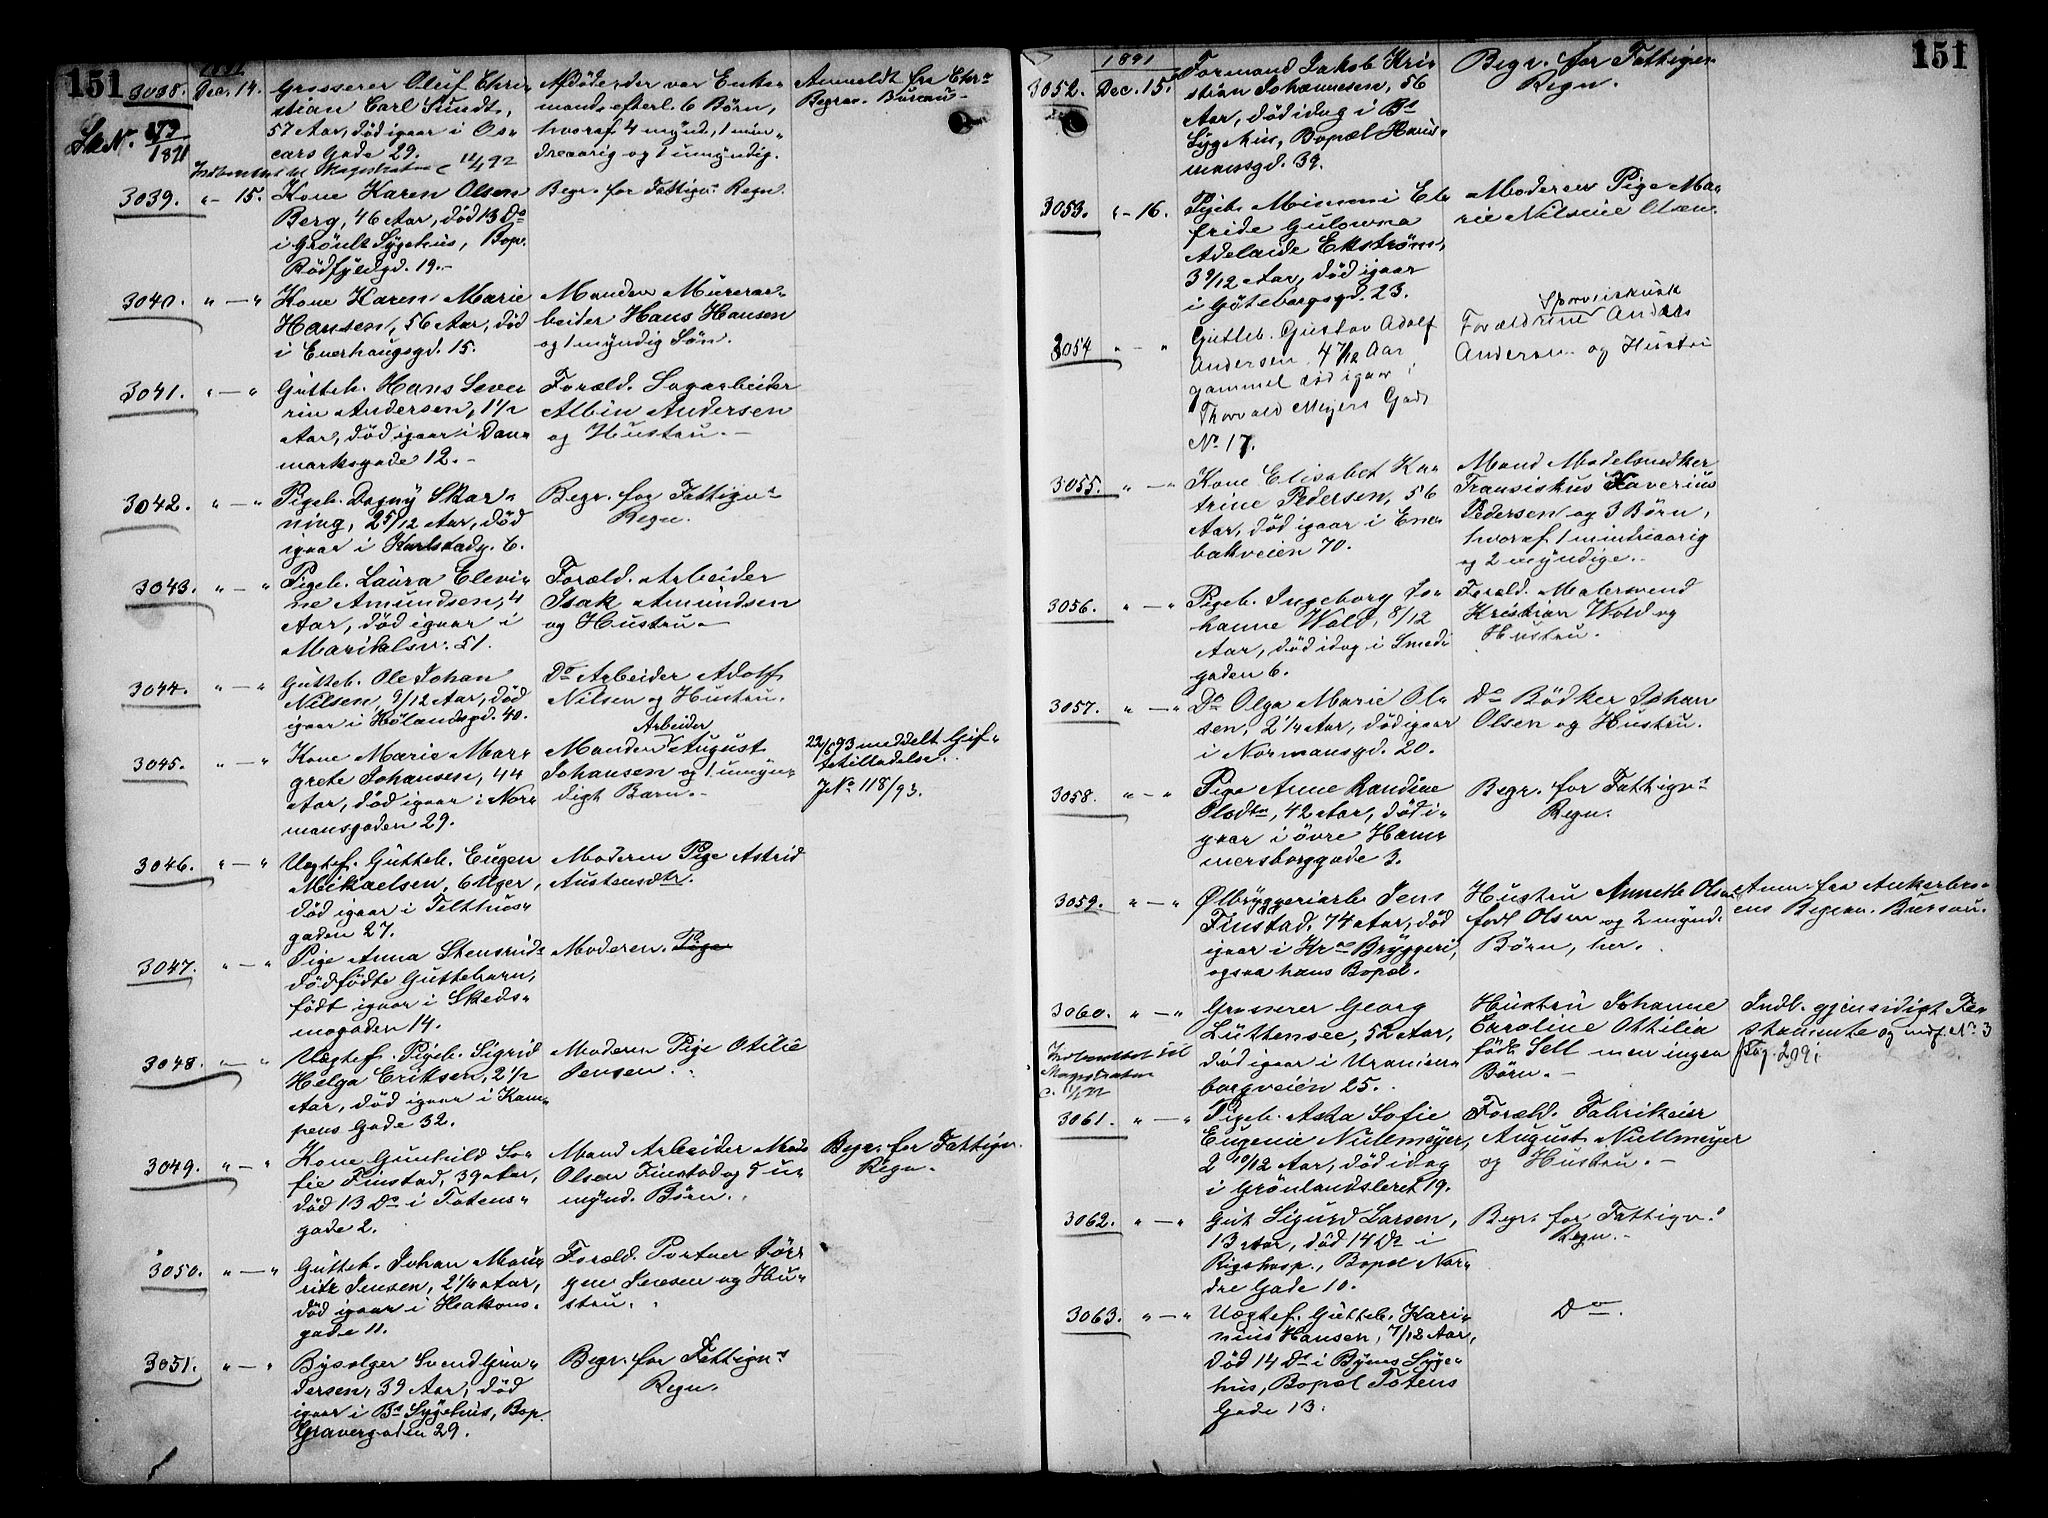 151
1891
3038. Dec. 14. Grosserer Oluf Chri-
stian Carl Sundt,
57 Aar, död igaar i Os-
cars Gade 29.
Afdöde der var Enke-
mand, efterl. 6 Börn,
hvoraf 4 mynd., 1 min-
dreaarig og 1 umyndig.
Anmeldt fra Chr.
Begrav. Bureau
173
1891
12/4 92
3039. " - 15. Kone Karen Olsen
Berg, 46 Aar, död 13 Ds
i Grönl. Sygehus, Bop.
Rödfyldgd. 19.-
Begr. for Fattigv. Regn.
3040. " — " Kone Karen Marie
Hansen, 56 Aar, död
i Enerhaugsgd. 15.
Manden Murerar-
beider Hans Hansen
og 1 myndig Sön.
3041. " — " Gutteb. Hans Seve-
rin Andersen, 1 1/2
Aar, död igaar i Dan-
marksgade 12.-
Foræld. Sagarbeider
Albin Andersen
og Hustru.-
3042. " — " Pigeb. Dagny Skar-
ning, 2 5/12 Aar, död
igaar i Karlstadg. 6.
Begr. for Fattigv.s
Regn.
3043. " — " Pigeb. Laura Elevi-
ne Amundsen, 4
Aar, död igaar i
Maridalsv. 51.
Foræld. Arbeider
Isak Amundsen
og Hustru.-
3044. " — " Gutteb. Ole Johan
Nilsen, 9/12 Aar, död
igaar i Hölandsgd. 40.
Do Arbeider Adolf
Nilsen og Hustru.
3045. " — " Kone Marie Mar-
grete Johansen, 44
Aar, död igaar i Nor-
mansgaden 29.
Arbeider
Manden August
Johansen og 1 umyn-
digt Barn.-
22/6 93 meddelt Gif-
tetilladelse.
J.No 118/93.
3046. " — " Uegtef. Gutteb. Eugen
Mikaelsen, 6 Uger,
död igaar i Telthus-
gaden 27.
Moderen Pige Astrid
Austensdtr.
3047. " — " Pige Anna Stensruds
dödfödte Guttebarn,
födt igaar i Skeds-
mogaden 14.
Moderen. Pige
3048. " — " Uegtef. Pigeb. Sigrid
Helga Eriksen, 2 1/2
Aar, död igaar i Kam-
pens Gade 32.
Moderen Pige Otilie
Jensen.
3049. " — " Kone Gunhild So-
fie Finstad, 39 Aar,
död 13 Ds i Totens-
gade 2.
Mand Arbeider
Olsen Finstad og 5 u-
mynd. Börn.
Begr. for Fattigv.
Regn.
3050. " — " Gutteb. Johan Mau-
ritz Jensen, 2 1/4 Aar,
död igaar i Haakons-
gade 11.
Foræld. Portner Jör-
gen Jensen og Hu-
stru.
3051. " — " Bysælger Svend Gun-
dersen, 39 Aar, död
igaar i Bs Sygehus, Bop.
Gravergaden 29.
Begr. for Fattigv.s
Regn.
151
1891
3052. Dec. 15. Formand Jakob Kri-
stian Johannesen, 56
Aar, död idag i Bs
Sygehus, Bopæl Haus-
mansgd. 39.
Begr. for Fattigv.
Regn.
3053. " - 16. Pigeb. Mimmi El-
fride Gulowna
Adelaide Ekström,
3 9/12 Aar, död igaar
i Göteborgsgd. 23.
Moderen Pige Ma-
rie Nilsine Olsen.
3054 " — " Gutteb. Gustav Adolf
Andersen 4 7/12 Aar
gammel död igaar i
Thorvald Meyers Gade
No 17.
Sporveiskusk
Forældrene Anders
Andersen og Hustru
3055. " — " Kone Elisabet Ka-
trine Pedersen, 56
Aar, död igaar i Ene-
bakveien 70.
Mand Modelsnedker
Fransiskus Xaverius
Pedersen og 3 Börn,
hvoraf 1 mindreaarig
og 2 myndige.
3056. " — " Pigeb. Ingeborg Jo-
hanne Wold, 8/12
Aar, död idag i Smed-
gaden 6.
Foræld. Malersvend
Kristian Wold og
Hustru.
3057. " — " Do Olga Marie Ol-
sen, 2 1/4 Aar, död igaar
i Normansgd. 20.
Do Bödker Johan
Olsen og Hustru.
3058. " — " Pige Anne Randine
Olsdtr, 42 Aar, död i-
gaar i övre Ham-
mersborggade 3.
Begr. for Fattigv.s
Regn.
3059. " — " Ølbryggeriarb. Jens
Finstad, 74 Aar, död
igaar i Kr.a Bryggeri,
ogsaa hans Bopæl.
Hustru Annette Olsen
född Olsen og 2 mynd.
Börn, her.
Anm. fra Ankerbro-
ens Begrav. Bureau.
3060. " — " Grosserer Georg
Lüttensee, 52 Aar,
död igaar i Uranien-
borgveien 25.
Hustru Johanne
Caroline Ottilia
född Sell men ingen
Börn.-
Indl. gjensidigt Te-
stamente og indf. No 3
Pag. 209.
3061. " — " Pigeb. Asta Sofie
Eugenie Nullmeyer,
2 10/12 Aar, död idag
i Grönlandsleret 19.
Foræld. Fabrikeier
August Nullmeyer
og Hustru.-
3062. " — " Gut Sigurd Larsen,
13 Aar, död 14 Ds i
Rigshosp., Bopæl Nor-
dre Gade 10.
Begr. for Fattigv.s
Regn.-
3063. " — " Uegtef. Gutteb. Kari-
nius Hansen, 7/12 Aar,
död 14 Ds i Byens Syge-
hus, Bopæl Totens
Gade 13.
Do.